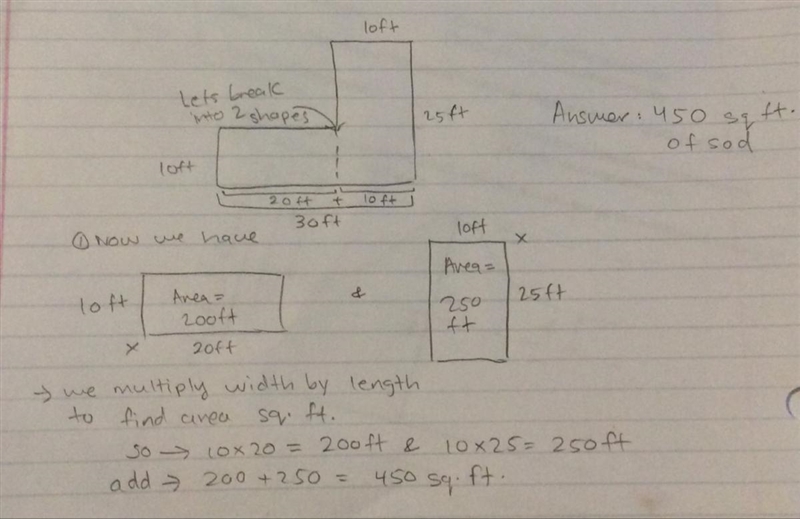 10ft
Lets break
into 2 shapes
25ft
10ft
20ft + 10ft
30ft
Answer: 450 sq ft.
of sod
① Now we have
10ft
Area =
200ft
x 20ft
&
10ft x
Area =
250
ft
25ft
→ we multiply width by length
to find area sq. ft.
so → 10x20 = 200ft & 10x25 = 250ft
add → 200 + 250 = 450 sq. ft.